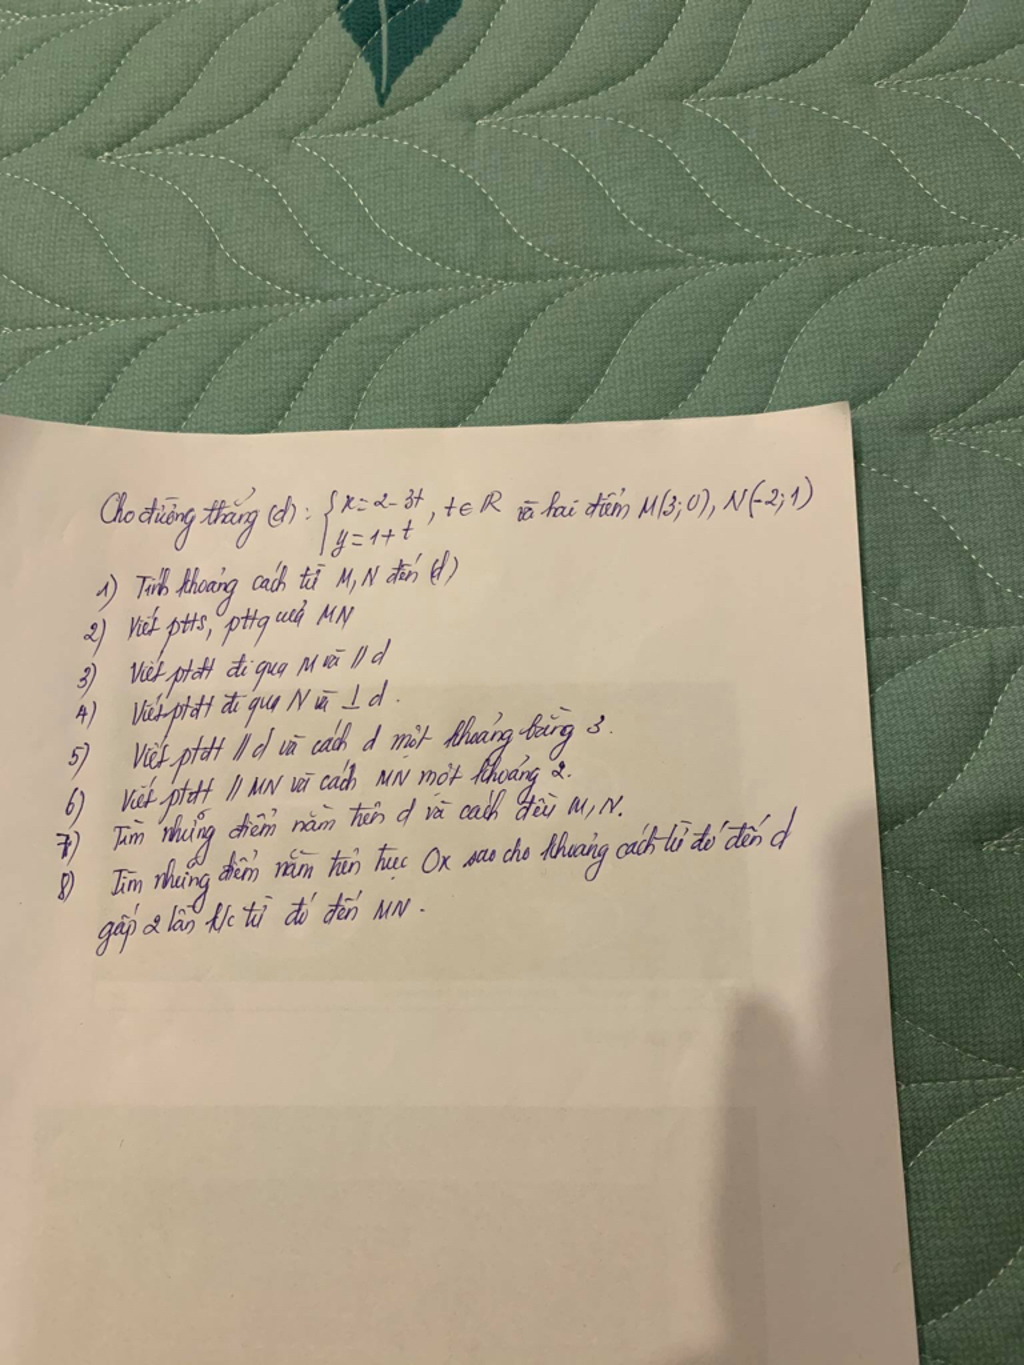 Cho đường thẳng (d): { x = 2 - 3t , t ∈ R và hai điểm M(3; 0), N(-2; 1)
y = 1 + t
1) Tính khoảng cách từ M, N đến (d)
2) Viết ptts, pttq của MN
3) Viết ptđt đi qua M và // d
4) Viết ptđt đi qua N và ⊥ d.
5) Viết ptđt // d và cách d một khoảng bằng 3.
6) Viết ptđt // MN và cách MN một khoảng 2.
7) Tìm những điểm nằm trên d và cách đều M, N.
8) Tìm những điểm nằm trên trục Ox sao cho khoảng cách từ đó đến d
gấp 2 lần k/c từ đó đến MN.